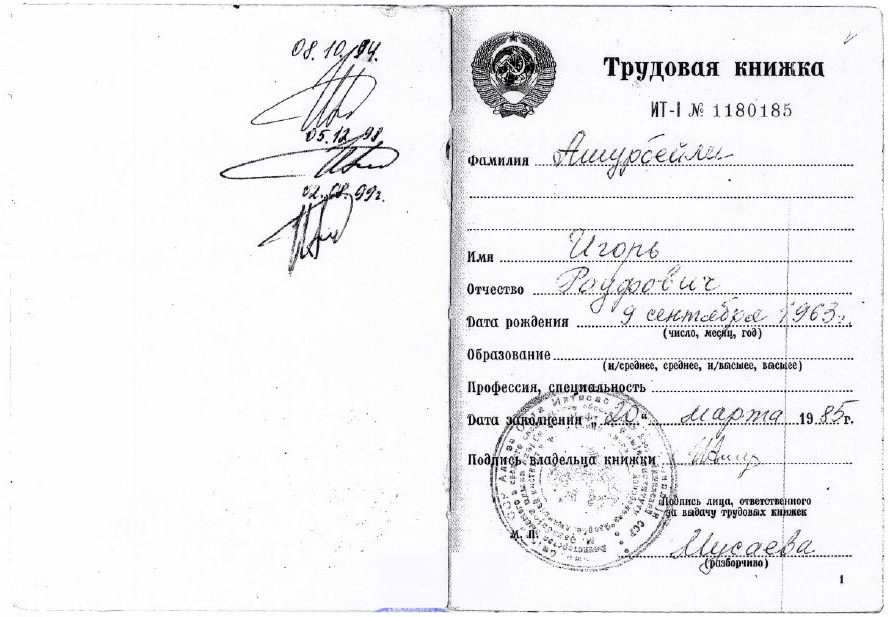 08.10.94.
05.12.98
02.08.99г.
Трудовая книжка
ИТ-I № 1180185
Фамилия Ашурбейли
Имя Игорь
Отчество Рауфович
Дата рождения 9 сентября 1963г.
(число, месяц, год)
Образование
(н/среднее, среднее, н/высшее, высшее)
Профессия, специальность
Дата заполнения „20“ марта 1985г.
Подпись владельца книжки
Подпись лица, ответственного
за выдачу трудовых книжек
М. П.
Мусаева
(разборчиво)
1